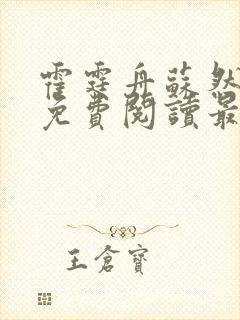 霍霆舟蘇然
免費閱讀最
王倉寶